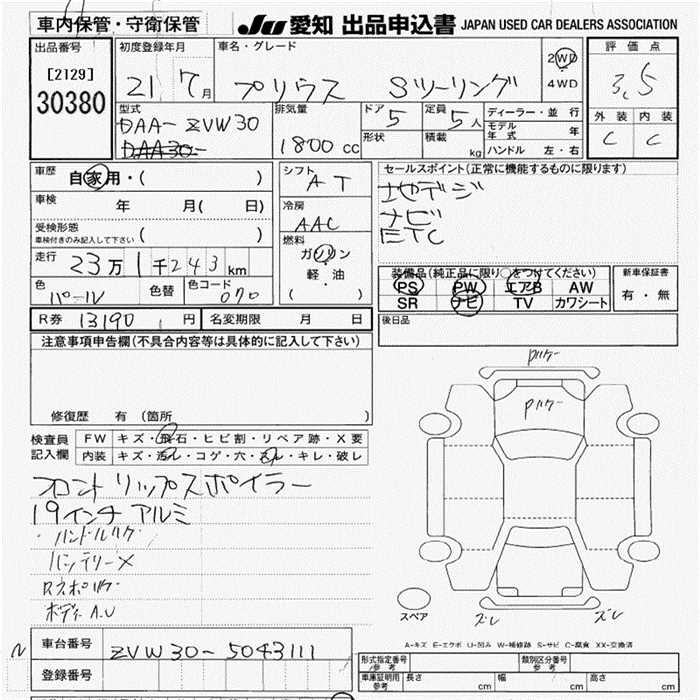 車内保管・守衛保管
JU 愛知 出品申込書 JAPAN USED CAR DEALERS ASSOCIATION
出品番号
[2129]
30380
初度登録年月
21 7月
車名・グレード
プリウス Sツーリング
2WD
4WD
評価点
3.5
外装 内装
C C
型式
DAA-ZVW30
DAA30
排気量
1800 cc
ドア 5
形状
定員 5人
積載 kg
ディーラー・並行
モデル年式 年
ハンドル 左・右
車歴
自家用・( )
車検 年 月( 日)
受検形態
車検付きのみ記入して下さい ( )
走行 23万1千243km
色 パール
色替
色コード 070
シフト AT
冷房 AAC
燃料
ガソリン
軽・油
( )
セールスポイント(正常に機能するものに限ります)
地デジ
ナビ
ETC
装備品(純正品に限り○をつけてください)
PS PW エアB AW
SR ナビ TV カワシート
新車保証書
有・無
R券 13190円
名変期限 月 日
後日品
注意事項申告欄(不具合内容等は具体的に記入して下さい)
修復歴 有(箇所 )
検査員記入欄
FW キズ・飛石・ヒビ割・リペア跡・X要
内装 キズ・汚レ・コゲ・穴・スレ・キレ・破レ
フロントリップスポイラー
19インチアルミ
・ハンドルハゲ
バッテリーX
ボディA.U
Pハゲ
Pハゲ
スペア
ズレ ズレ
A-キズ E-エクボ U-凹み W-補修跡 S-サビ C-腐食 XX-交換済
N
車台番号 ZVW30-5043111
登録番号
形式指定番号 参考
類別区分番号 参考
車庫証明用 参考 長さ cm 幅 cm 高さ cm